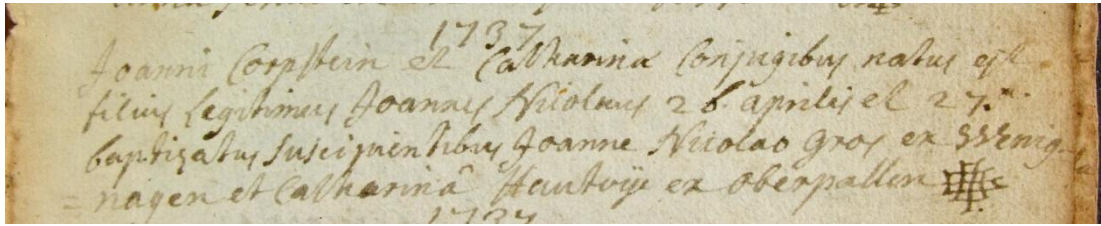 1737
Joanni Corpstein et Catharina Conjugibus natus est
filius Legitimus Joannes Nicolaus 26. aprilis et 27.
baptizatus suscipientibus Joanne Nicolao gros ex
= nagen et Catharinâ ex oberpallen
1737